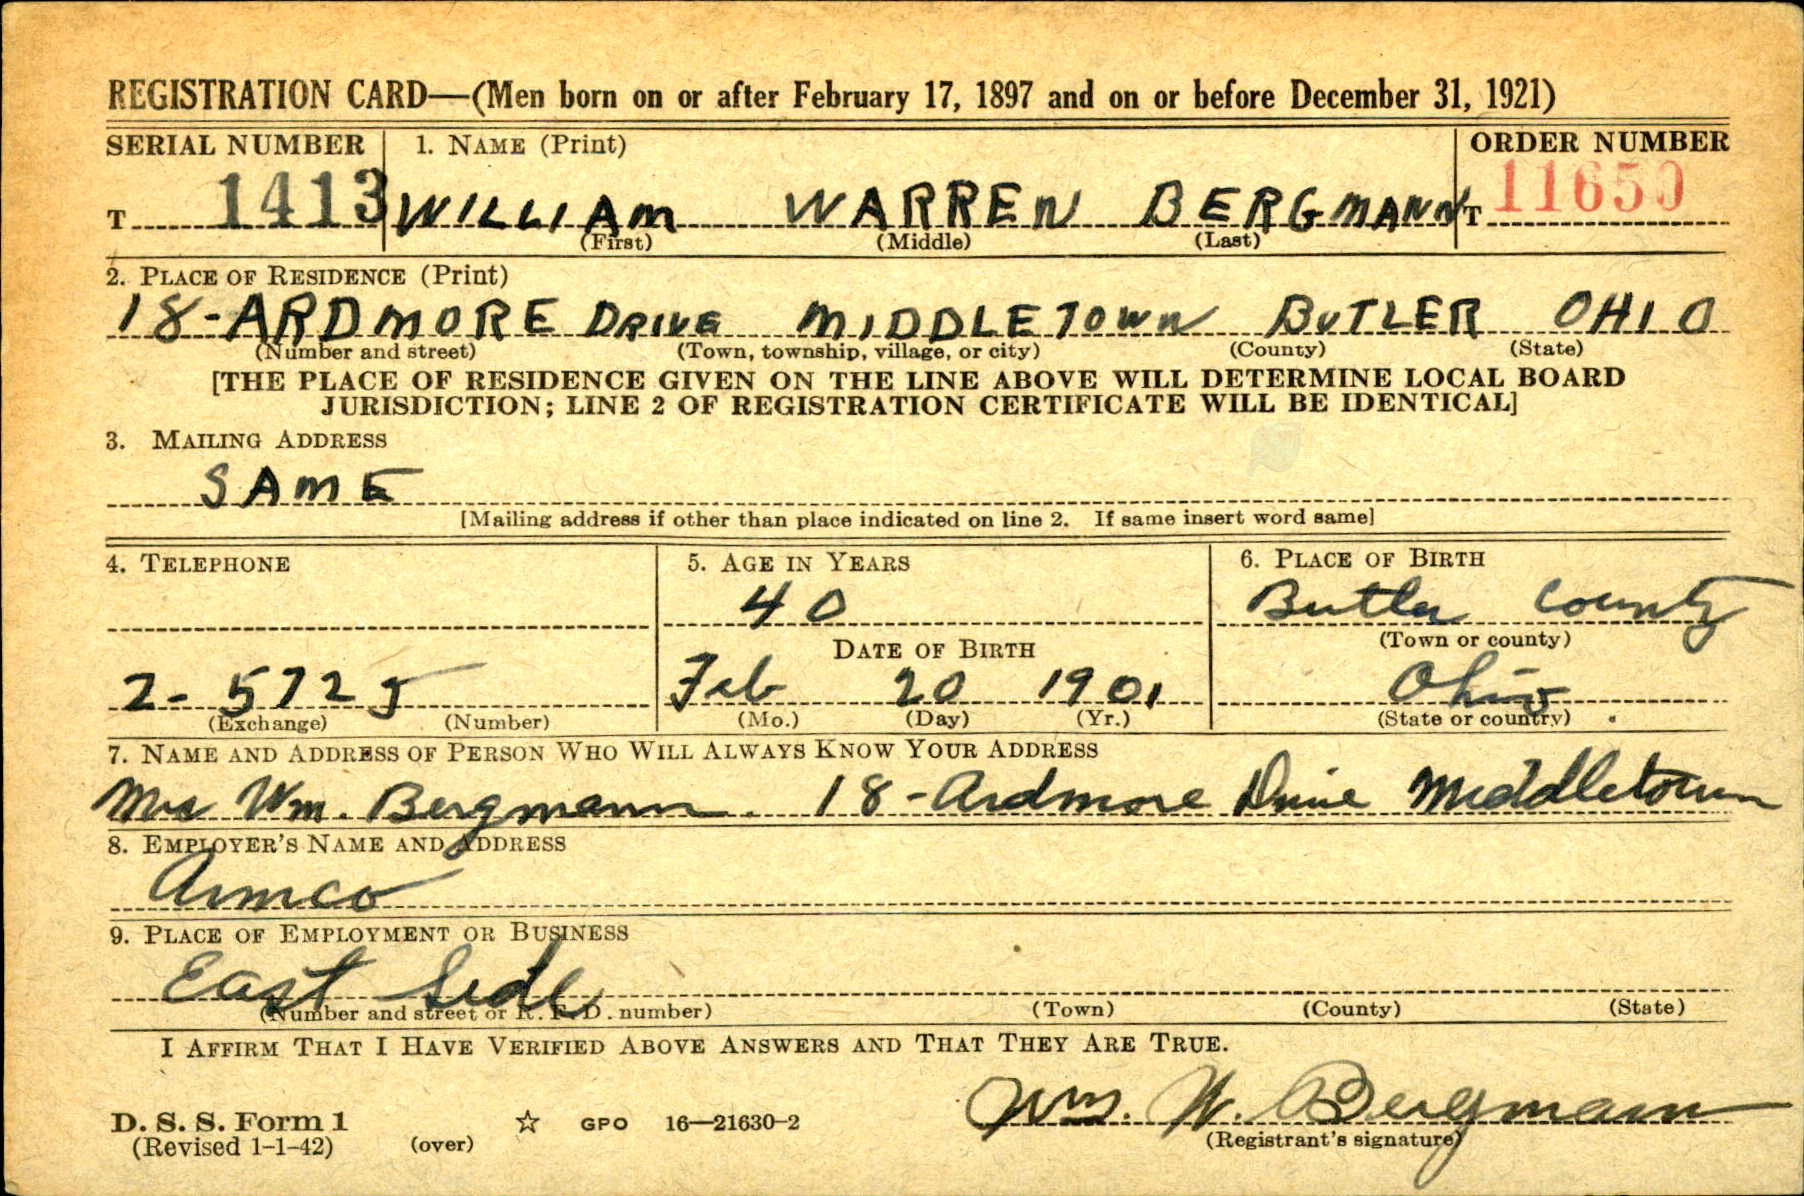 REGISTRATION CARD—(Men born on or after February 17, 1897 and on or before December 31, 1921)
SERIAL NUMBER 1. NAME (Print) ORDER NUMBER
T 1413 WILLIAM WARREN BERGMANN T 11650
(First) (Middle) (Last)
2. PLACE OF RESIDENCE (Print)
18-ARDMORE DRIVE MIDDLETOWN BUTLER OHIO
(Number and street) (Town, township, village, or city) (County) (State)
[THE PLACE OF RESIDENCE GIVEN ON THE LINE ABOVE WILL DETERMINE LOCAL BOARD
JURISDICTION; LINE 2 OF REGISTRATION CERTIFICATE WILL BE IDENTICAL]
3. MAILING ADDRESS
SAME
[Mailing address if other than place indicated on line 2. If same insert word same]
4. TELEPHONE 5. AGE IN YEARS 6. PLACE OF BIRTH
40 Butler County
DATE OF BIRTH (Town or county)
2-5725 Feb 20 1901 Ohio
(Exchange) (Number) (Mo.) (Day) (Yr.) (State or country)
7. NAME AND ADDRESS OF PERSON WHO WILL ALWAYS KNOW YOUR ADDRESS
Mrs Wm. Bergmann. 18-Ardmore Drive Middletown
8. EMPLOYER'S NAME AND ADDRESS
Armco
9. PLACE OF EMPLOYMENT OR BUSINESS
East Side
(Number and street or R. F. D. number) (Town) (County) (State)
I AFFIRM THAT I HAVE VERIFIED ABOVE ANSWERS AND THAT THEY ARE TRUE.
Wm. W. Bergmann
D. S. S. Form 1 ☆ GPO 16—21630-2
(Revised 1-1-42) (over) (Registrant's signature)